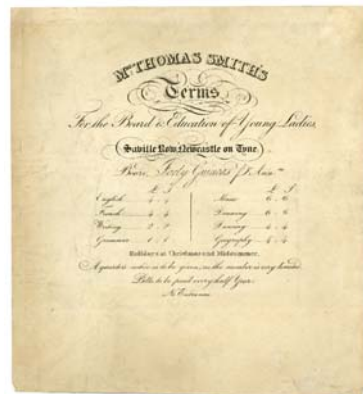 Mrs THOMAS SMITH'S
Terms
For the Board & Education of Young Ladies,
Saville Row, Newcastle on Tyne.
Board, Forty Guineas Pr Ann.m
£ S £ S
English 4 4 Music 6 6
French 4 4 Drawing 6 6
Writing 2 2 Dancing 4 4
Grammar 1 1 Geography 4 4
Holidays at Christmas and Midsummer.
A quarter's notice is to be given, as the number is very limited
Bills to be paid every half Year.
No Entrance.